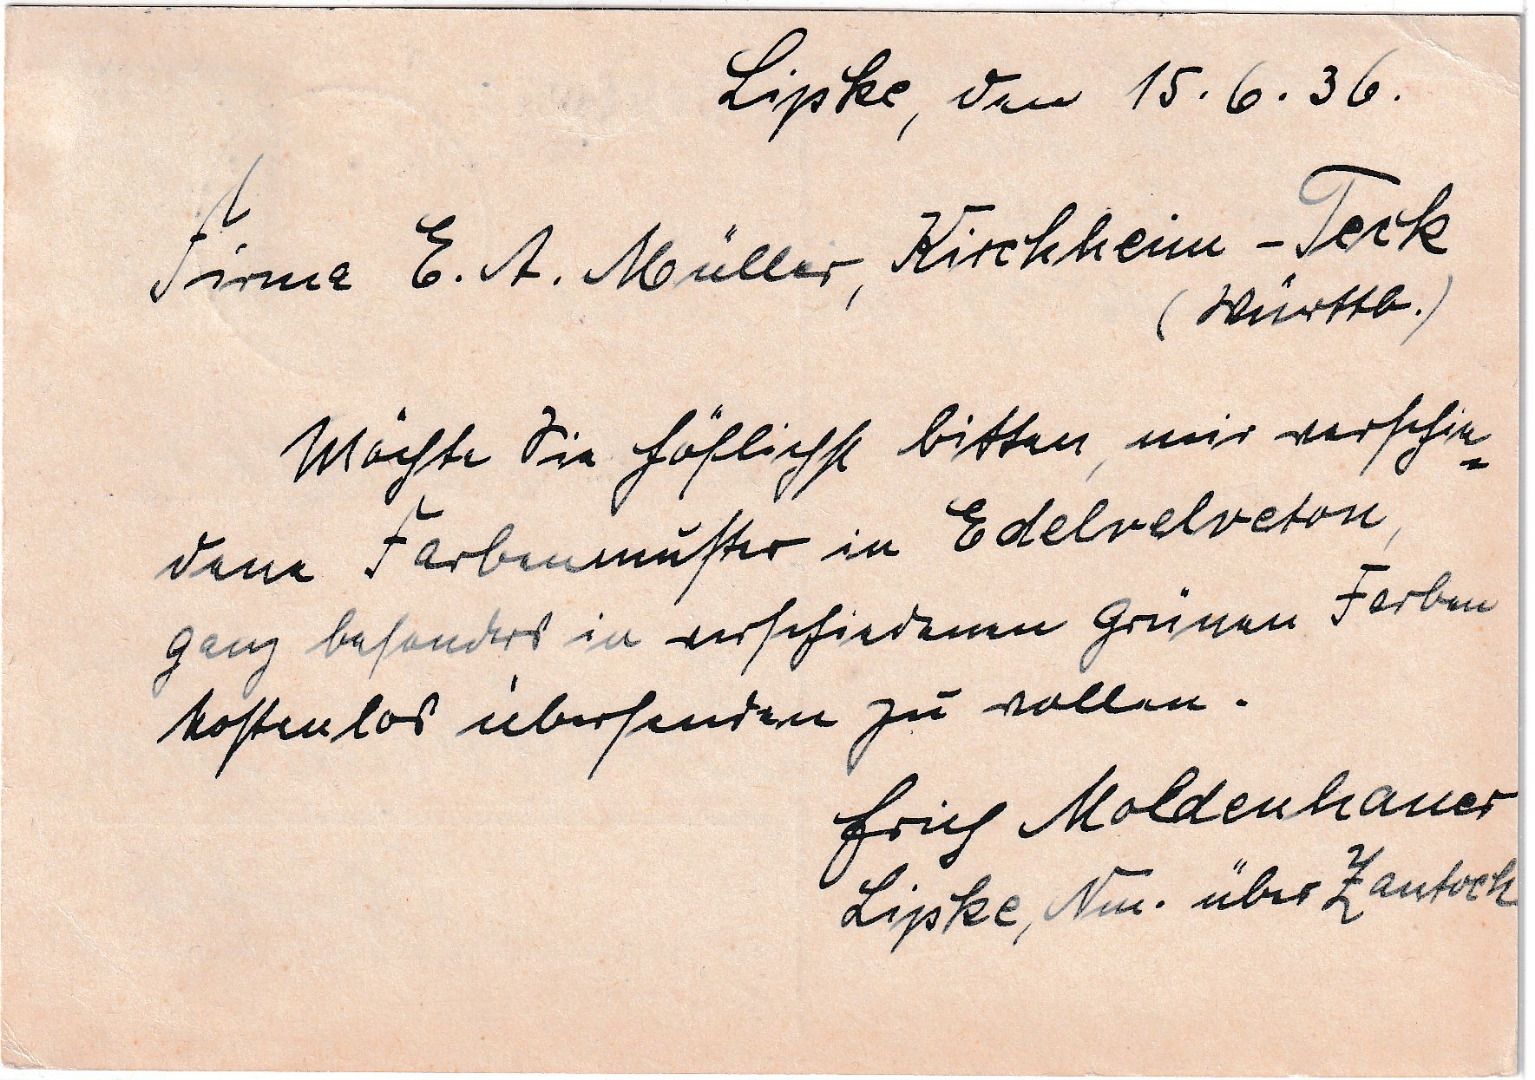 Lipke, den 15.6.36.
Firma E. A. Müller, Kirchheim-Teck
(Württb.)
Möchte Sie höflichst bitten, mir verschie=
dene Farbenmuster in Edelvelveton,
ganz besonders in verschiedenen grünen Farben
kostenlos übersenden zu wollen.
Erich Moldenhauer
Lipke, Nm. über Zantoch